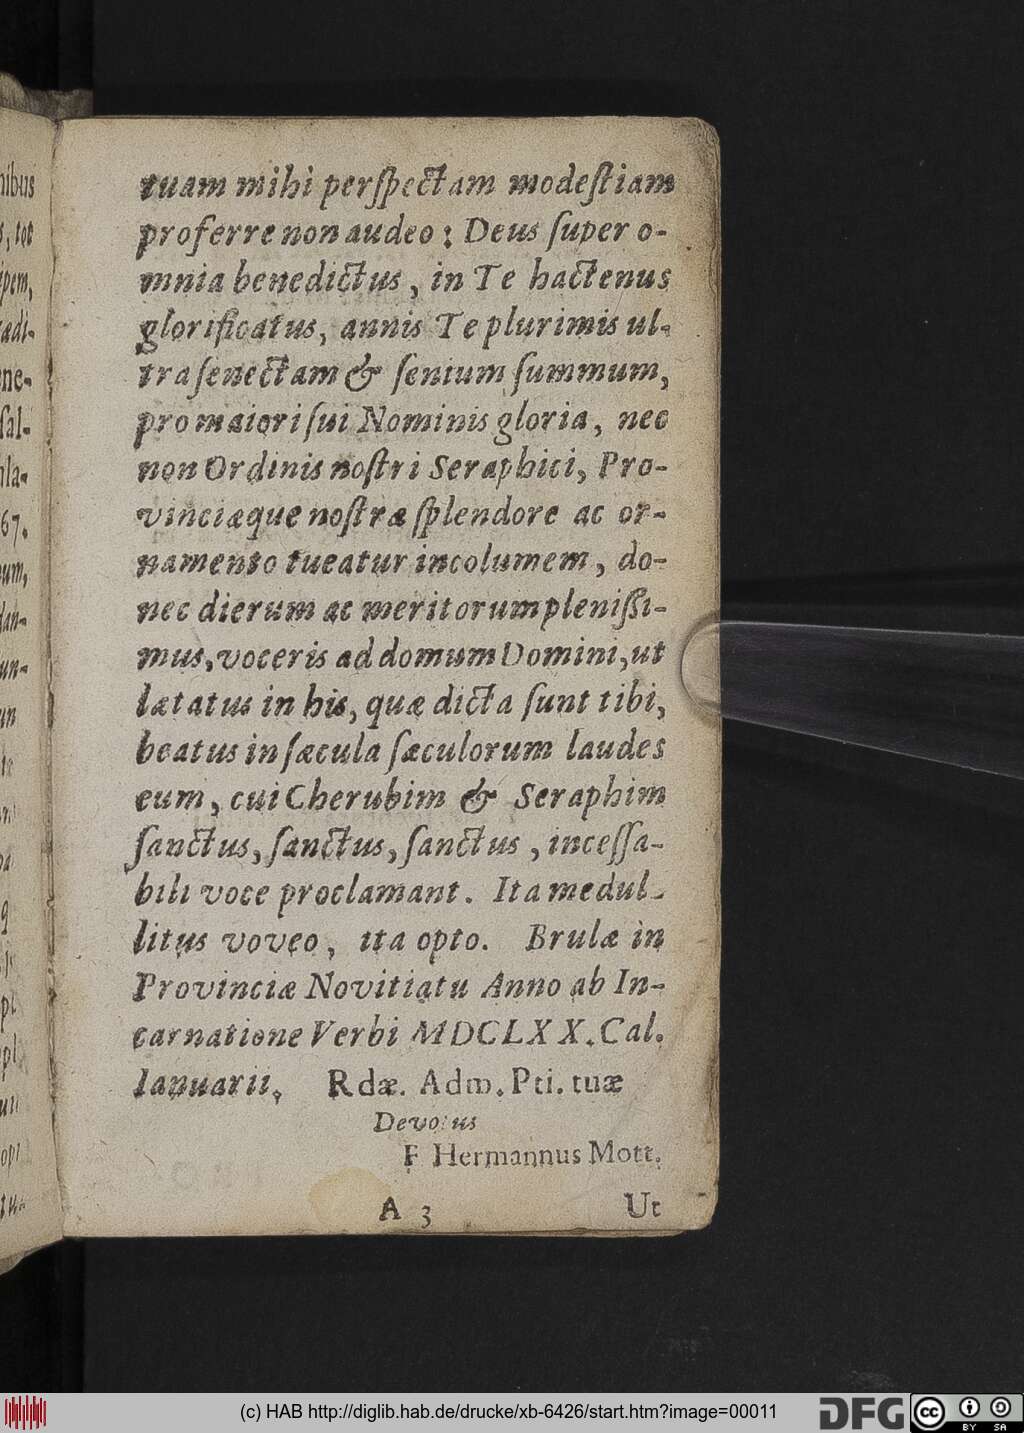 tuam mihi perſpectam modeſtiam
proferre non audeo: Deus ſuper o-
mnia benedictus, in Te hactenus
glorificatus, annis Te plurimis ul-
tra ſenectam & ſenium ſummum,
pro maiori ſui Nominis gloria, nec
non Ordinis noſtri Seraphici, Pro-
vinciæque noſtræ ſplendore ac or-
namento tueatur incolumem, do-
nec dierum ac meritorum pleniſſi-
mus, voceris ad domum Domini, ut
lætatus in his, quæ dicta ſunt tibi,
beatus in ſæcula ſæculorum laudes
eum, cui Cherubim & Seraphim
ſanctus, ſanctus, ſanctus, inceſſa-
bili voce proclamant. Ita medul-
litus voveo, ita opto. Brulæ in
Provinciæ Novitiatu Anno ab In-
carnatione Verbi MDCLXX. Cal.
Ianuarii. Rdæ. Adm. Pti. tuæ
Devotus
F Hermannus Mott.
A 3 Ut
(c) HAB http://diglib.hab.de/drucke/xb-6426/start.htm?image=00011
DFG
cc BY SA